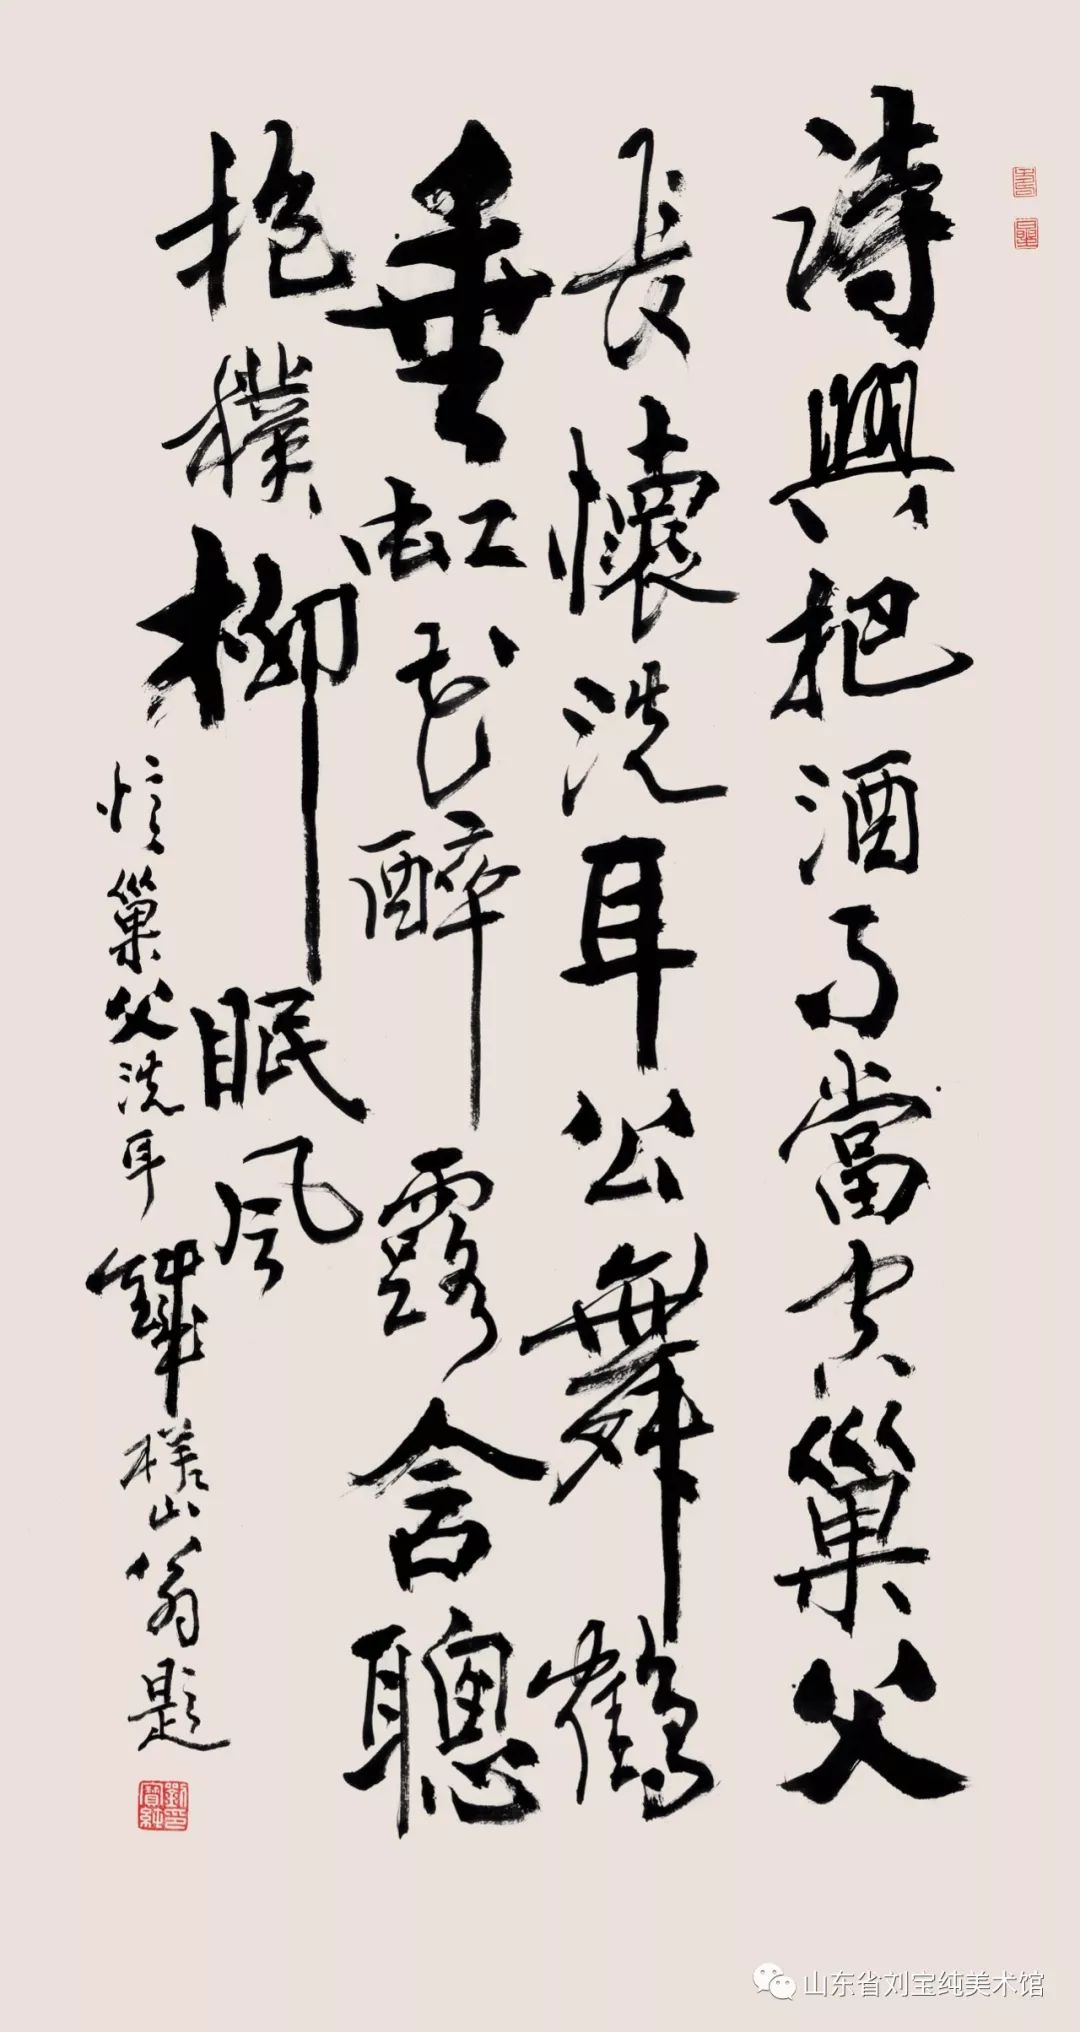 詩興把酒月當空巢父
長懷洗耳公舞鶴
垂虹花醉露含聰
抱樸柳眠風
憶巢父洗耳 鐵槎山翁題
劉寶純印
山东省刘宝纯美术馆